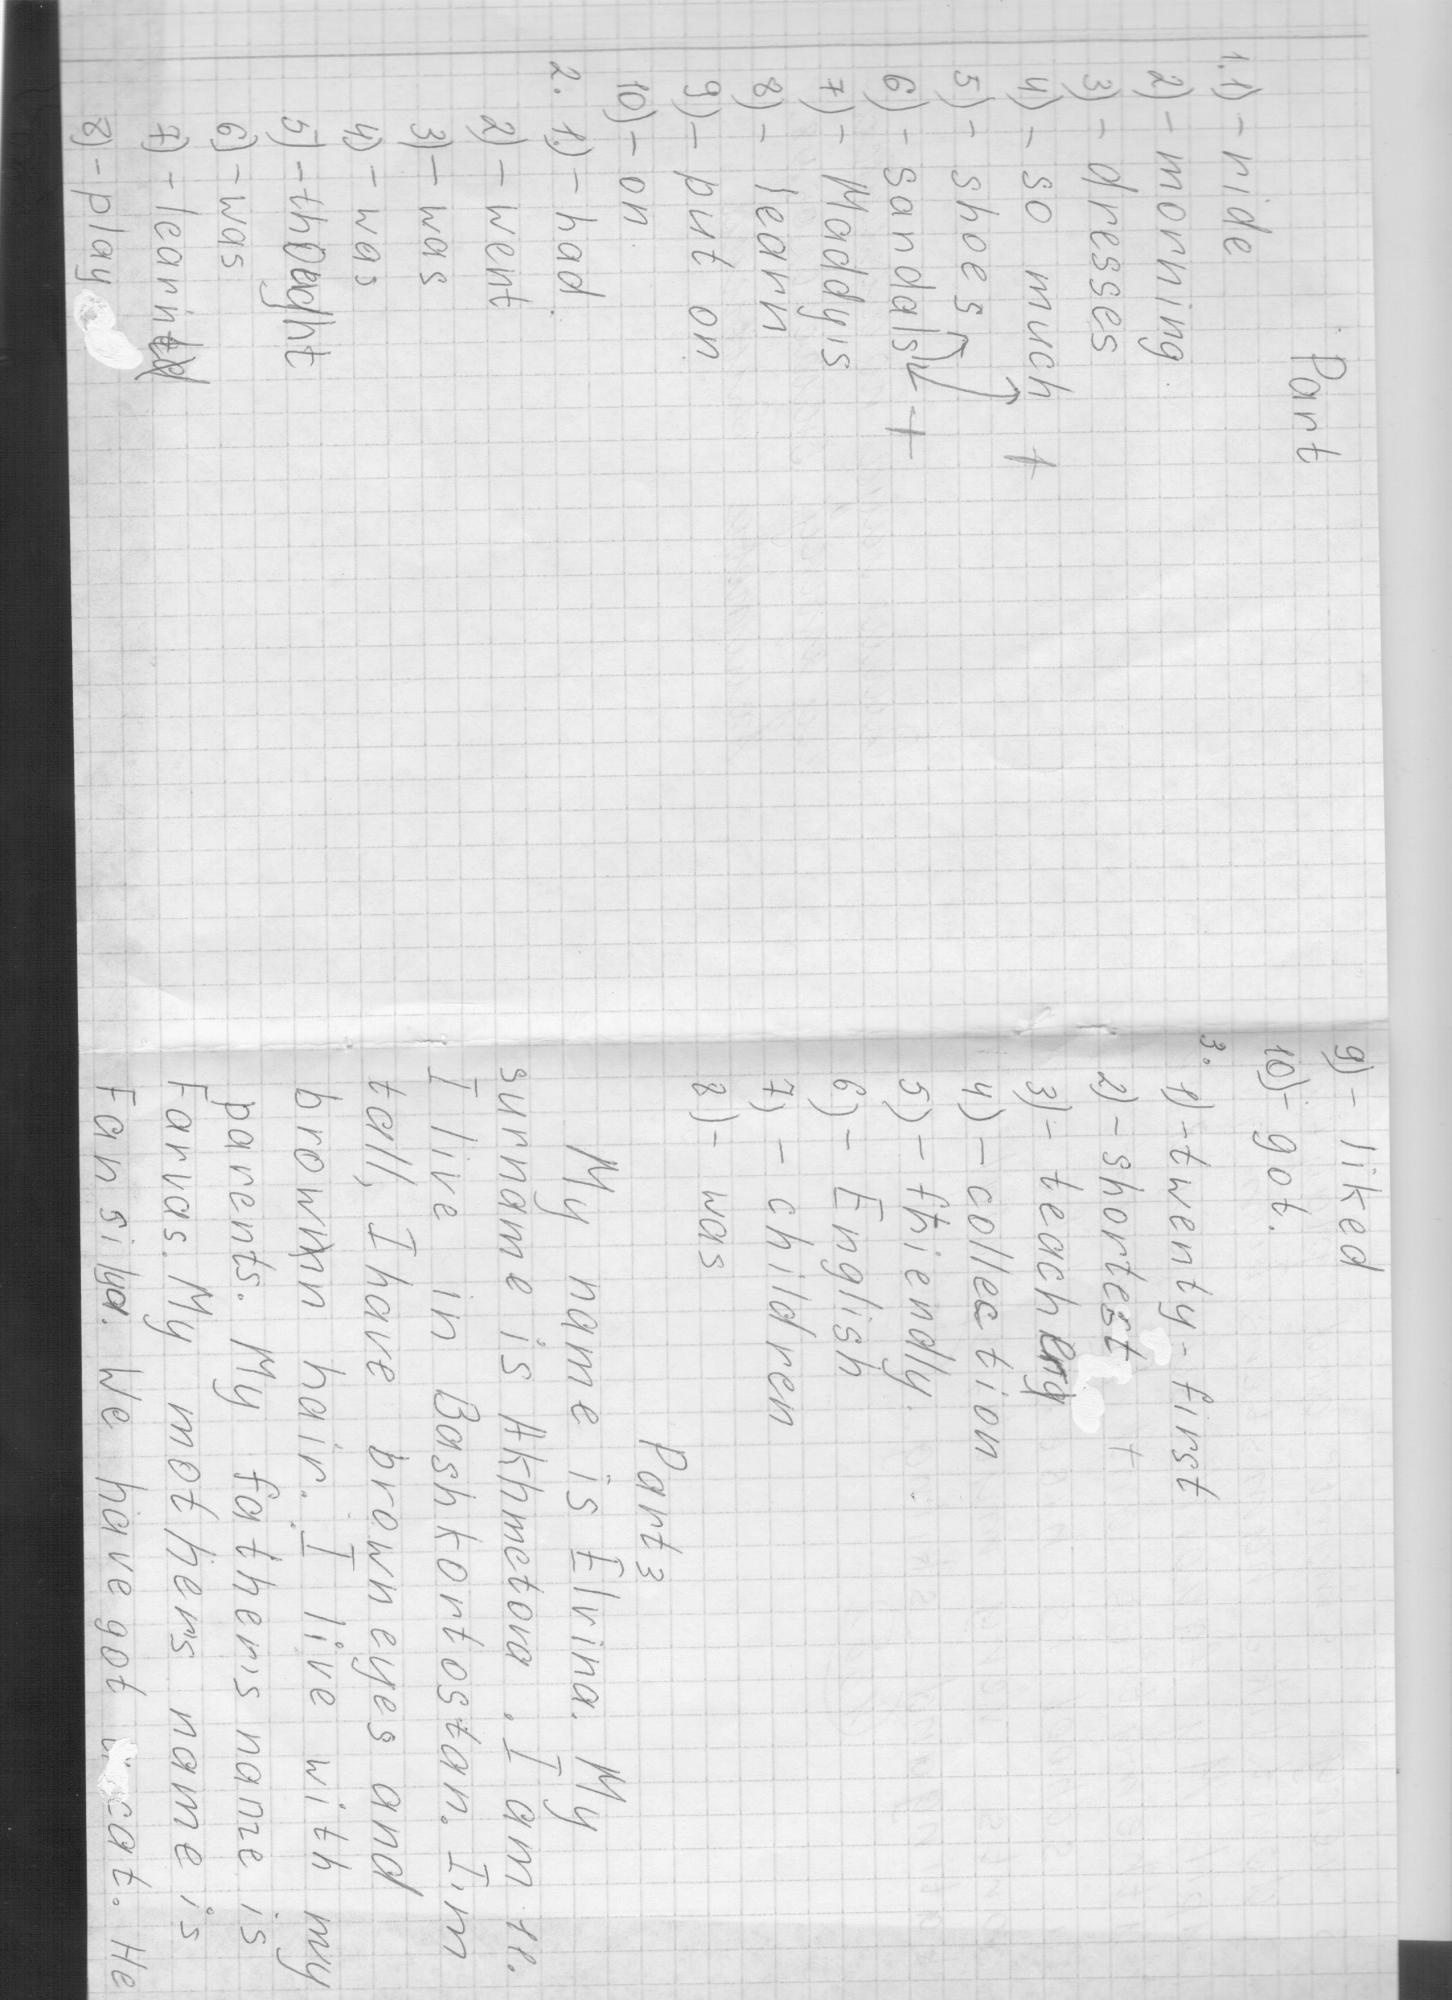 Part
1. 1) - ride
2) - morning
3) - dresses
4) - so much +
5) - shoes
6) - sandals +
7) - Maddy is
8) - learn
9) - put on
10) - on
2. 1) - had
2) - went
3) - was
4) - was
5) - thought
6) - was
7) - learn
8) - play
9) - liked
10) - got.
3. 1) - twenty-first
2) - shortest
3) - teach
4) - collection
5) - friendly.
6) - English
7) - children
8) - was
Part 3
My name is Elvina. My
surname is Akhmetova. I am 11.
I live in Bashkortostan. I'm
tall, I have brown eyes and
brown hair. I live with my
parents. My father's name is
Farvas. My mothers name is
Fansilya. We have got cat. He